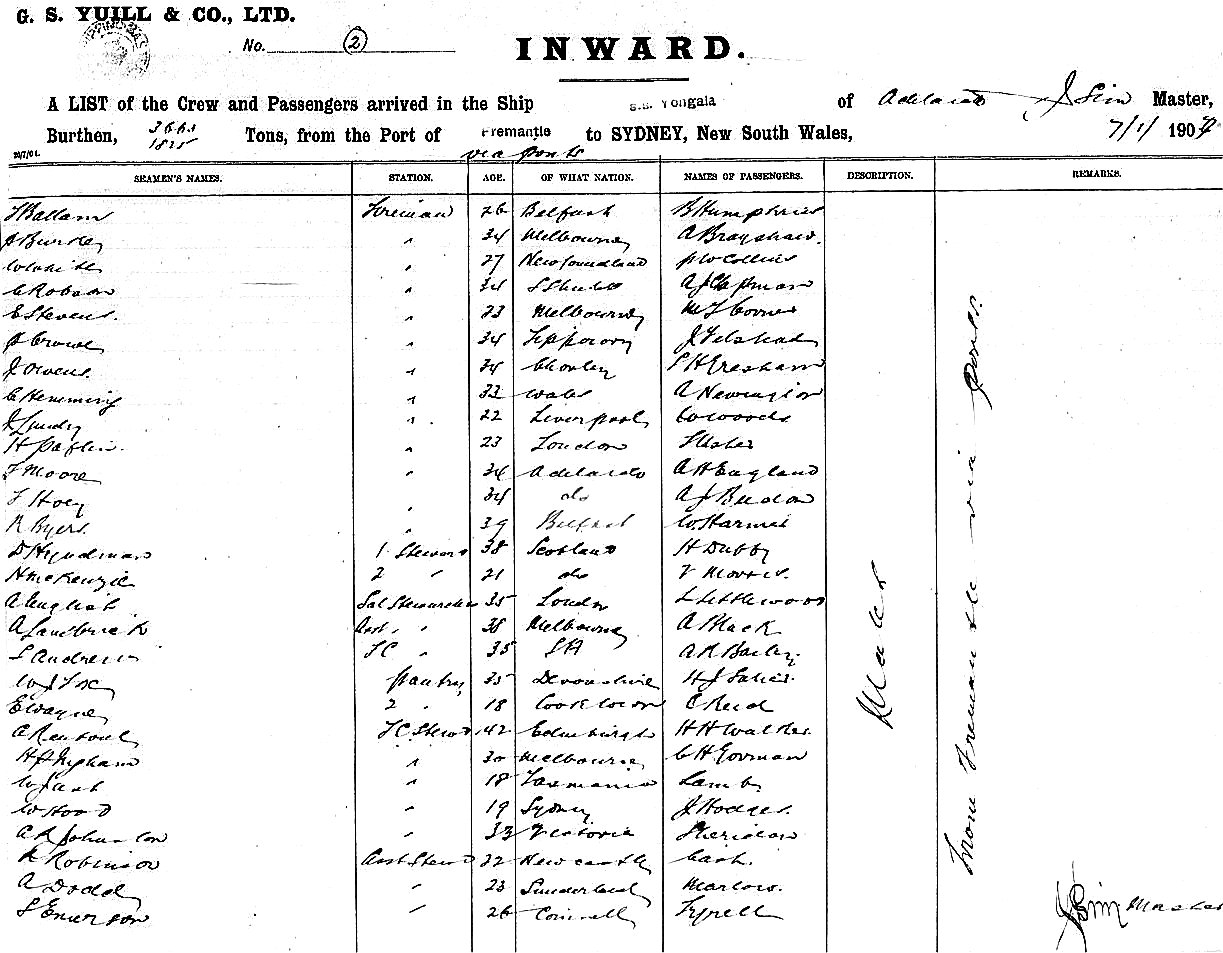 G. S. YUILL & CO., LTD.
No. 2
INWARD.
A LIST of the Crew and Passengers arrived in the Ship S.S. Yongala of Adelaide J Sim Master,
Burthen, 3663 1825 Tons, from the Port of Fremantle via ports to SYDNEY, New South Wales, 7/1/1907
SEAMEN'S NAMES. STATION. AGE. OF WHAT NATION. NAMES OF PASSENGERS. DESCRIPTION. REMARKS.
Ballam Fireman 26 Belfast B Humphries
" 34 Melbourne A Brayshaw.
W White " 27 Newfoundland P W Collins
C Robson " 34 S Shields A J Chapman
E Stevens. " 23 Melbourne
P Crowe " 34 Tipperary J
J Owens. " 34 Chorley S H Gresham
C Hemming " 33 Wales A Newington
J Lundy " 22 Liverpool W Woods
H " 23 London
F Moore " 34 Adelaide A H England
F Hoey " 34 do A J
R Byers. " 39 Belfast W. Harmes
D Hyndman 1 Steward 38 Scotland H Dubby
H McKenzie 2 " 21 do F Morris.
A English Sal Stewardess 35 London L Littlewood
A Asst " " 38 Melbourne A Black
S Andrews FC " 35 SA A R Bailey.
W J Fox Pantry 35 Devonshire H J
E Wayne 2 " 18 Cooktown C Reid
A Rentoul FC Stewd 42 Edinburgh H H Walker.
H P Ingham " 30 Melbourne C H Gorman
W J Cash " 18 Tasmania Lamb
W Hood " 19 Sydney J Hodges.
A R Johnston " 33 Victoria Sheridan
R Robinson Asst Stewd 32 Newcastle Cash.
A Dodd " 23 Sunderland Marlow.
S Emerson " 26 Cornwall Tyrell
From Fremantle via ports.
J Sim Master